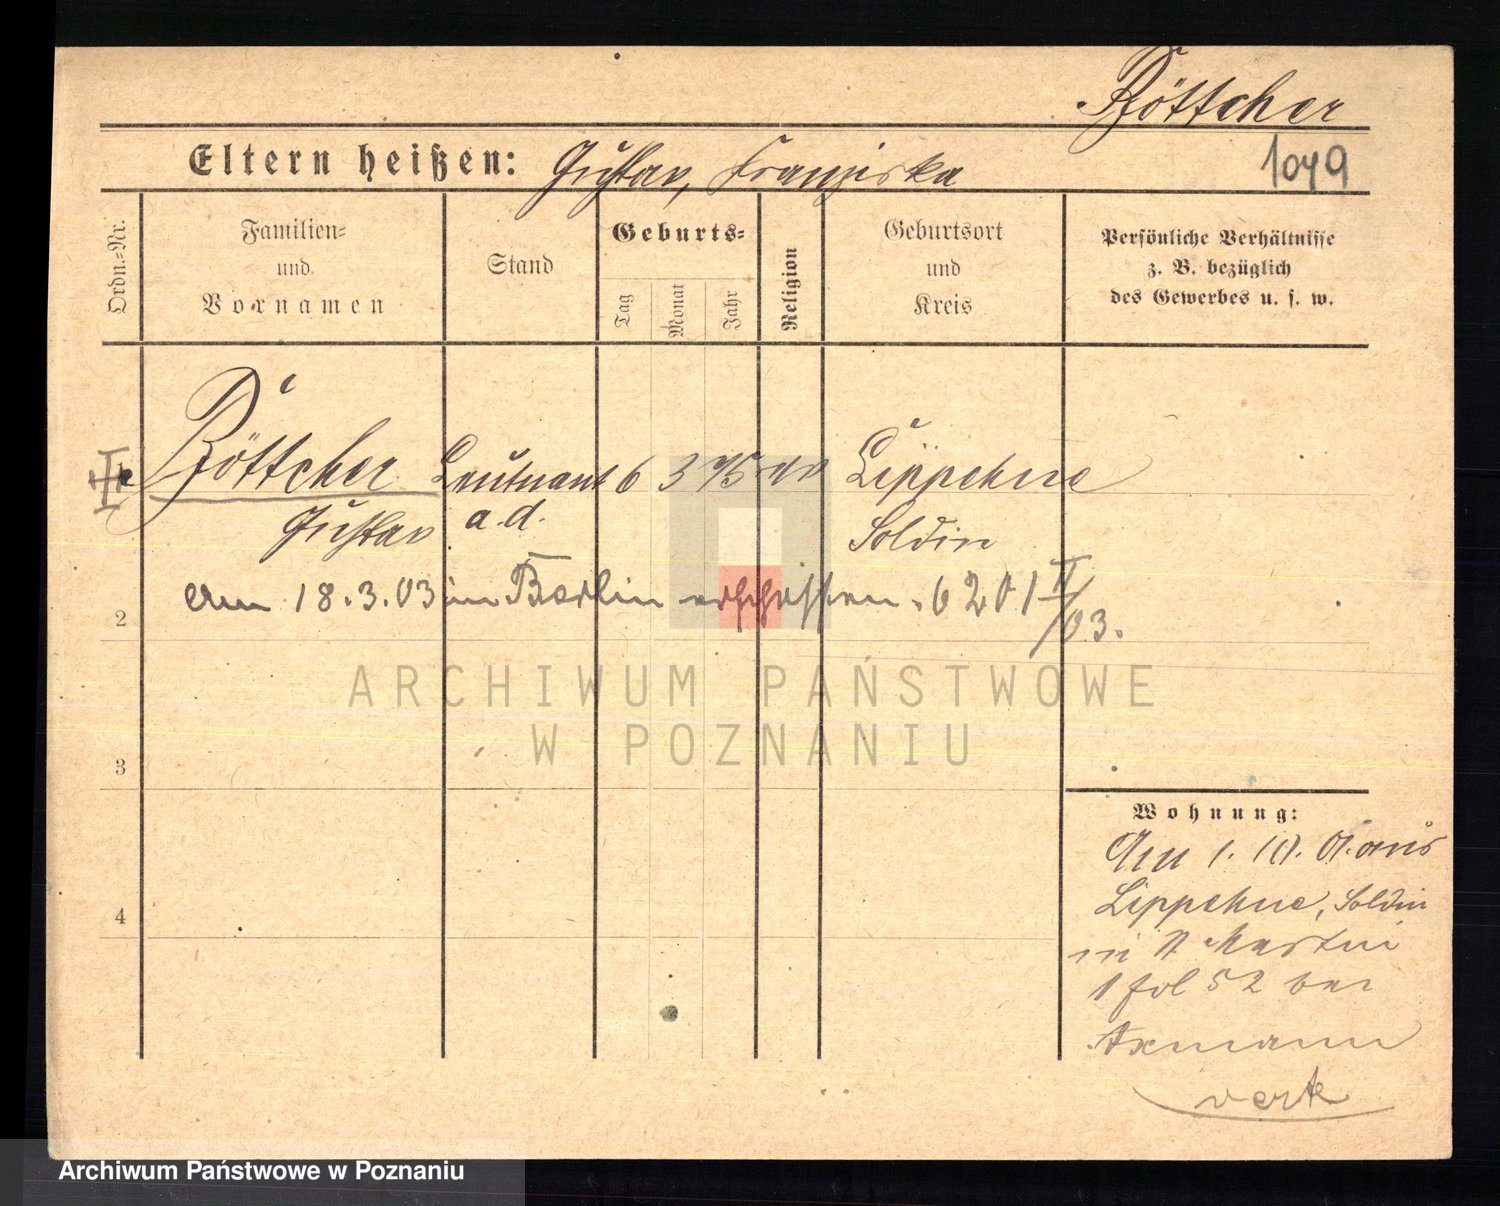 Böttcher
Eltern heißen: Gustav, Franziska
1079
Ordn.-Nr.
Familien-
und
Vornamen
Stand
Geburts-
Tag
Monat
Jahr
Religion
Geburtsort
und
Kreis
Persönliche Verhältnisse
z. B. bezüglich
des Gewerbes u. s. w.
Böttcher Leutnant 6 3 75 Lippehne
Gustav a.d. Soldin
2
am 18.3.03 in Berlin erschossen. 6201 II/03.
ARCHIWUM PAŃSTWOWE
W POZNANIU
3
Wohnung:
Am 1. 10. 01. aus
Lippehne, Soldin
in St Martin
1 fol 52 bei
Axmann
4
Archiwum Państwowe w Poznaniu